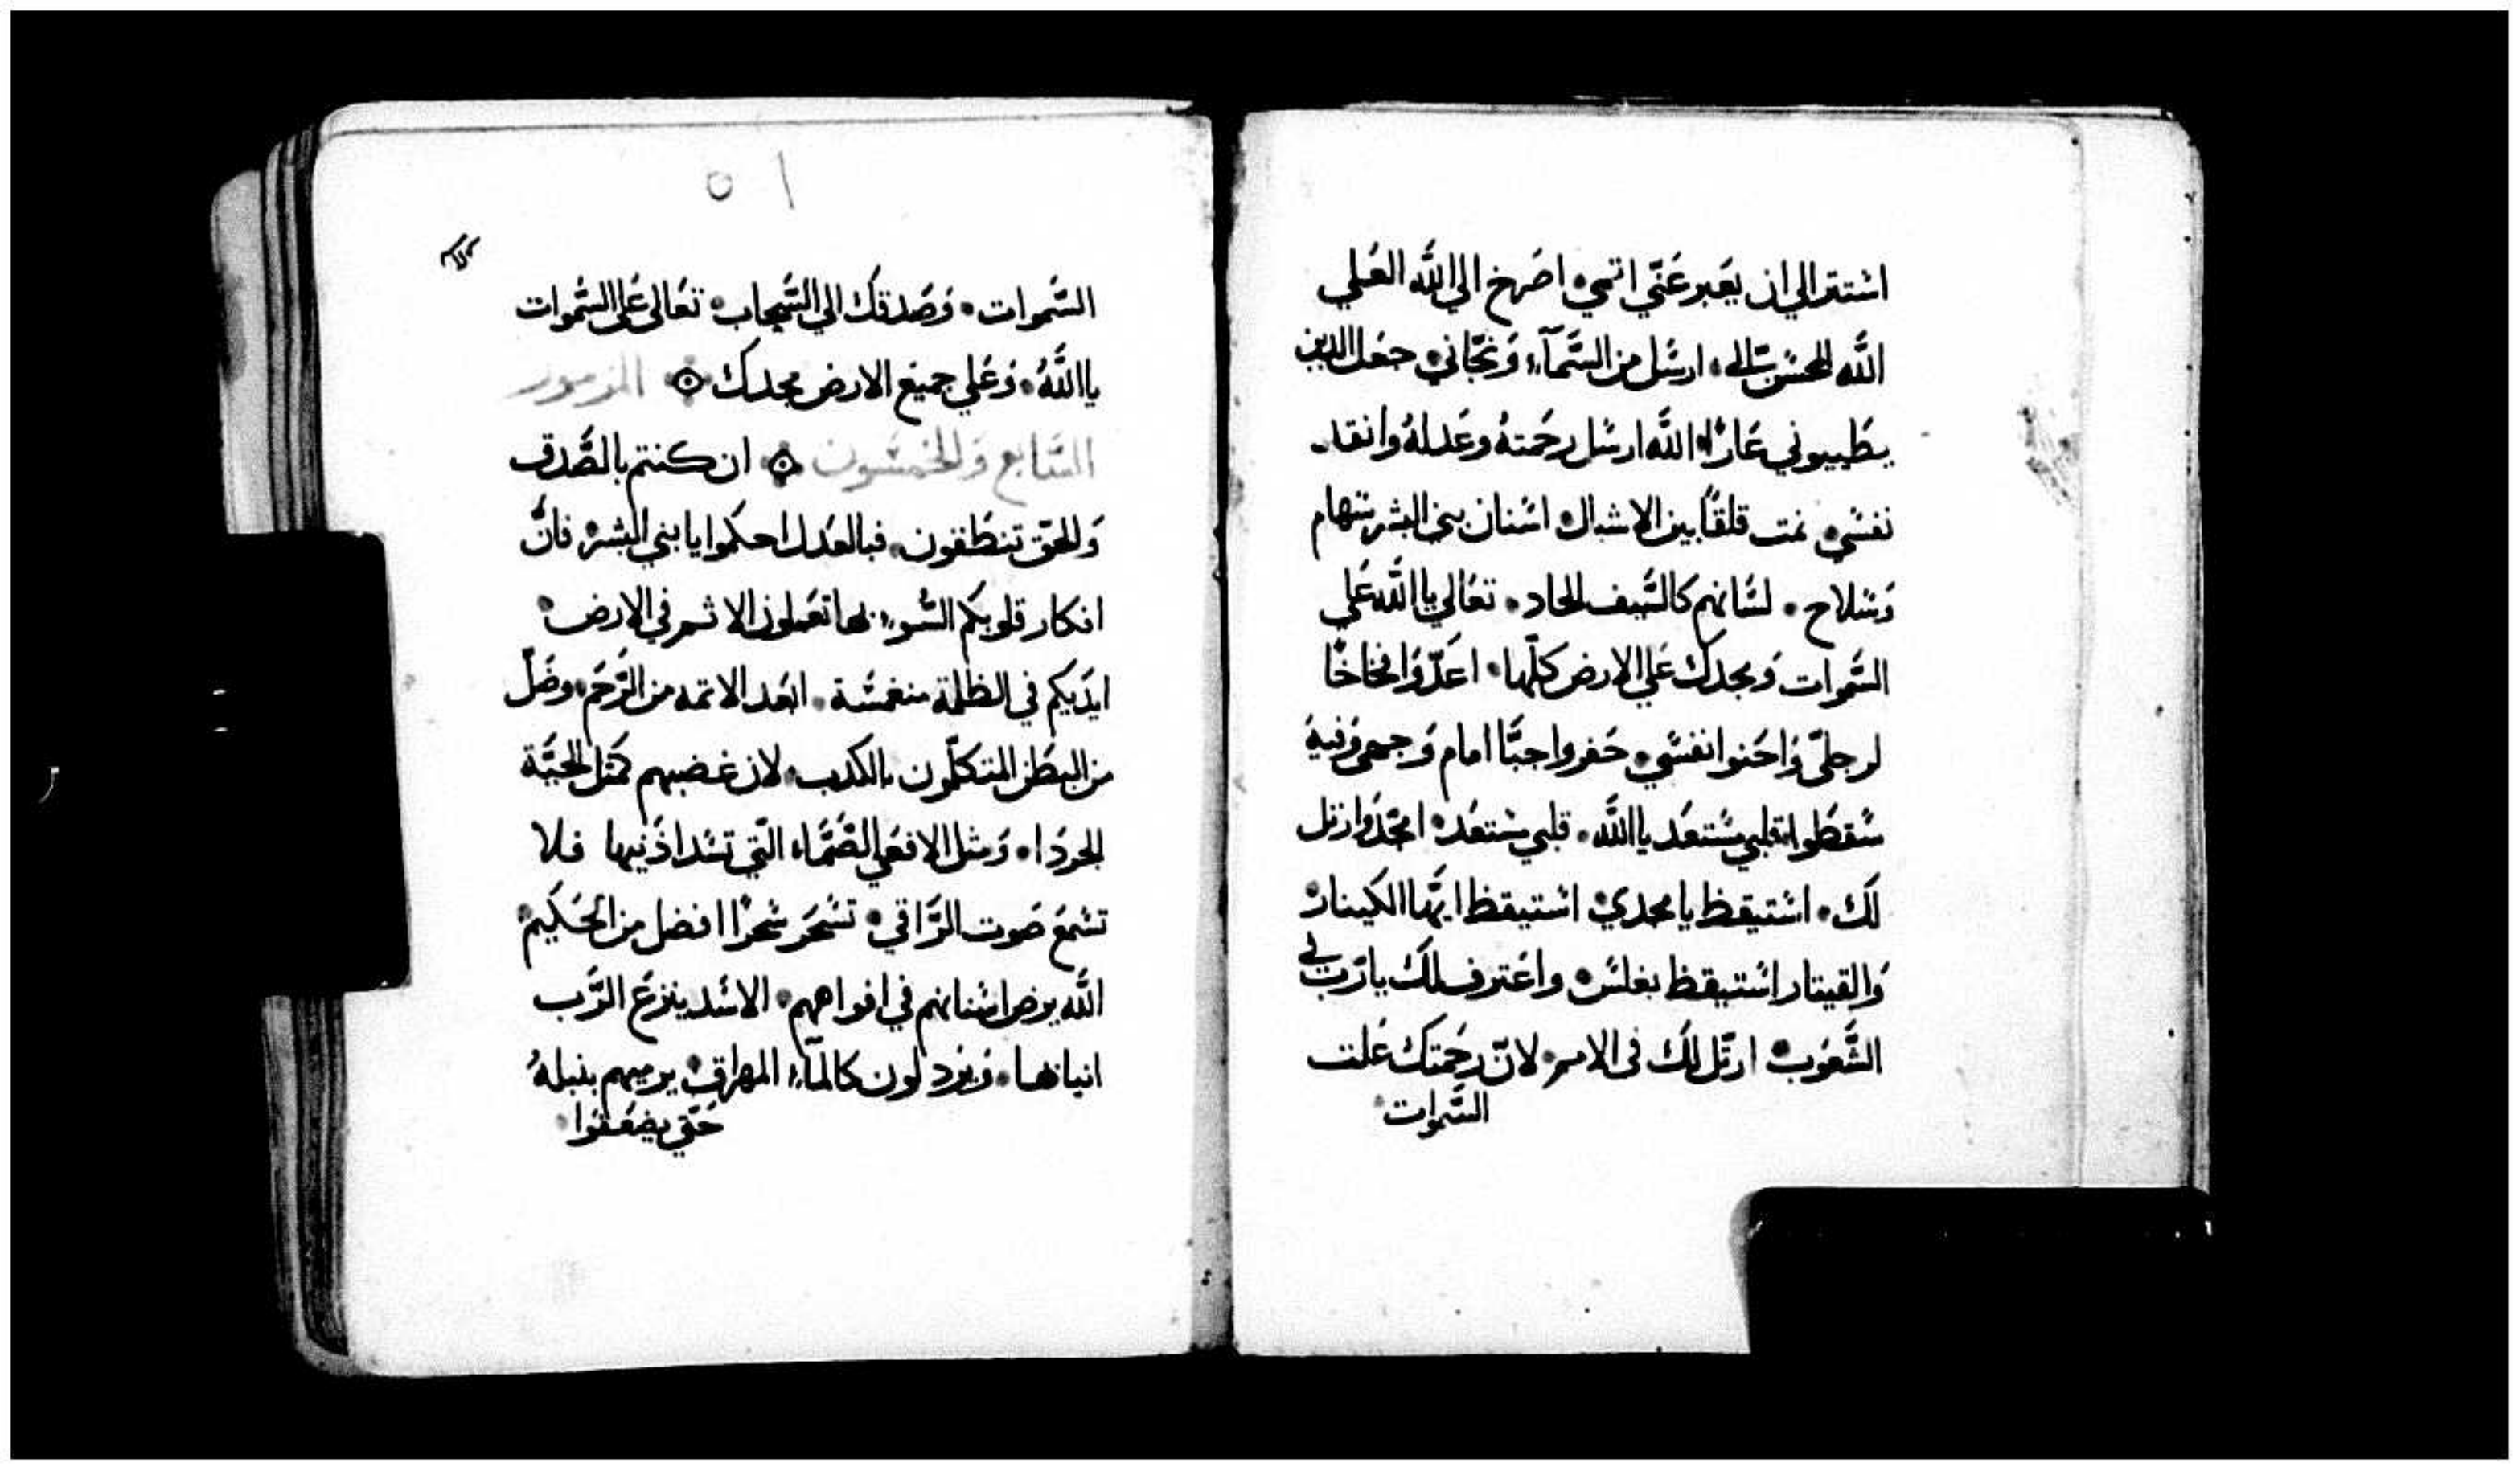 استتر الي ان يعبر عَنّي اتمي • اصرخ الي اللّٰه العُلي
اللَّه المحسن الي • ارسَل من السَّمآء وَنجّاني • جعل الدين
يطيبوني عَارًا • اللَّه ارسَل رحمَتهُ وعَدلهُ وانقد
نفسي • نمت قلقًا بين الاشبال • اسنان بني البشر سهام
وَسَلاح • لسَانهم كالسَّيف الحاد • تعَالي يا اللَّه عَلي
السَّموات وَمجدك عَلي الارض كلّها • اعَدّوَا فخاخًا
لرجليّ وَاحَنوا نفسي • حَفروا جبًّا امام وَجهي وَفيهِ
سَقطوا • قلبي مستعَد يا اللَّه • قلبي مستعَد • امجّدَ وَارتل
لَك • استيقظ يا مجدي • استيقظ ايّها الكينار
وَالقيتار استيقظ بغلس • واعَترف لك يا رَب في
الشَّعَوب • ارتّل لَك في الامم • لانّ رحَمتك عَلت
السَّموات
٥١
السَّموات • وَصَدقَك الي السَّحاب • تعَالى عَلي السَّموات
يا اللَّهُ • وَعَلي جميَع الارض مجدك المزمور
السَّابع وَالخمسون ان كنتم بالصَّدق
وَالحقّ تنطقون • فبالعَدل احكموا يا بني البشر • فانَّ
افكار قلوبكم السُّوء • بها تعَملون الاثم في الارض •
ايدَيكم في الظلمة منغمسَة • ابعَد الاتمه من الرَّحَم • وضَلّ
من البطن المتكلّمون بالكدب • لان غضبهم كمثل الحيَّة
الجردَا • وَمثل الافعَي الصَّمَّاء الَّتي تسَد اذَنيها فلا
تسَمعَ صَوت الرَّاقي • تسَحَر سَحرًا افضل من الحَكيم •
اللَّه يرض اسنانهم في افواههم • الاسَد ينزعَ الرَّب
انيابها • وَيزدَلون كالمآء المهراق • يرميهم بنبلهُ
حَتّي يضعَفوا